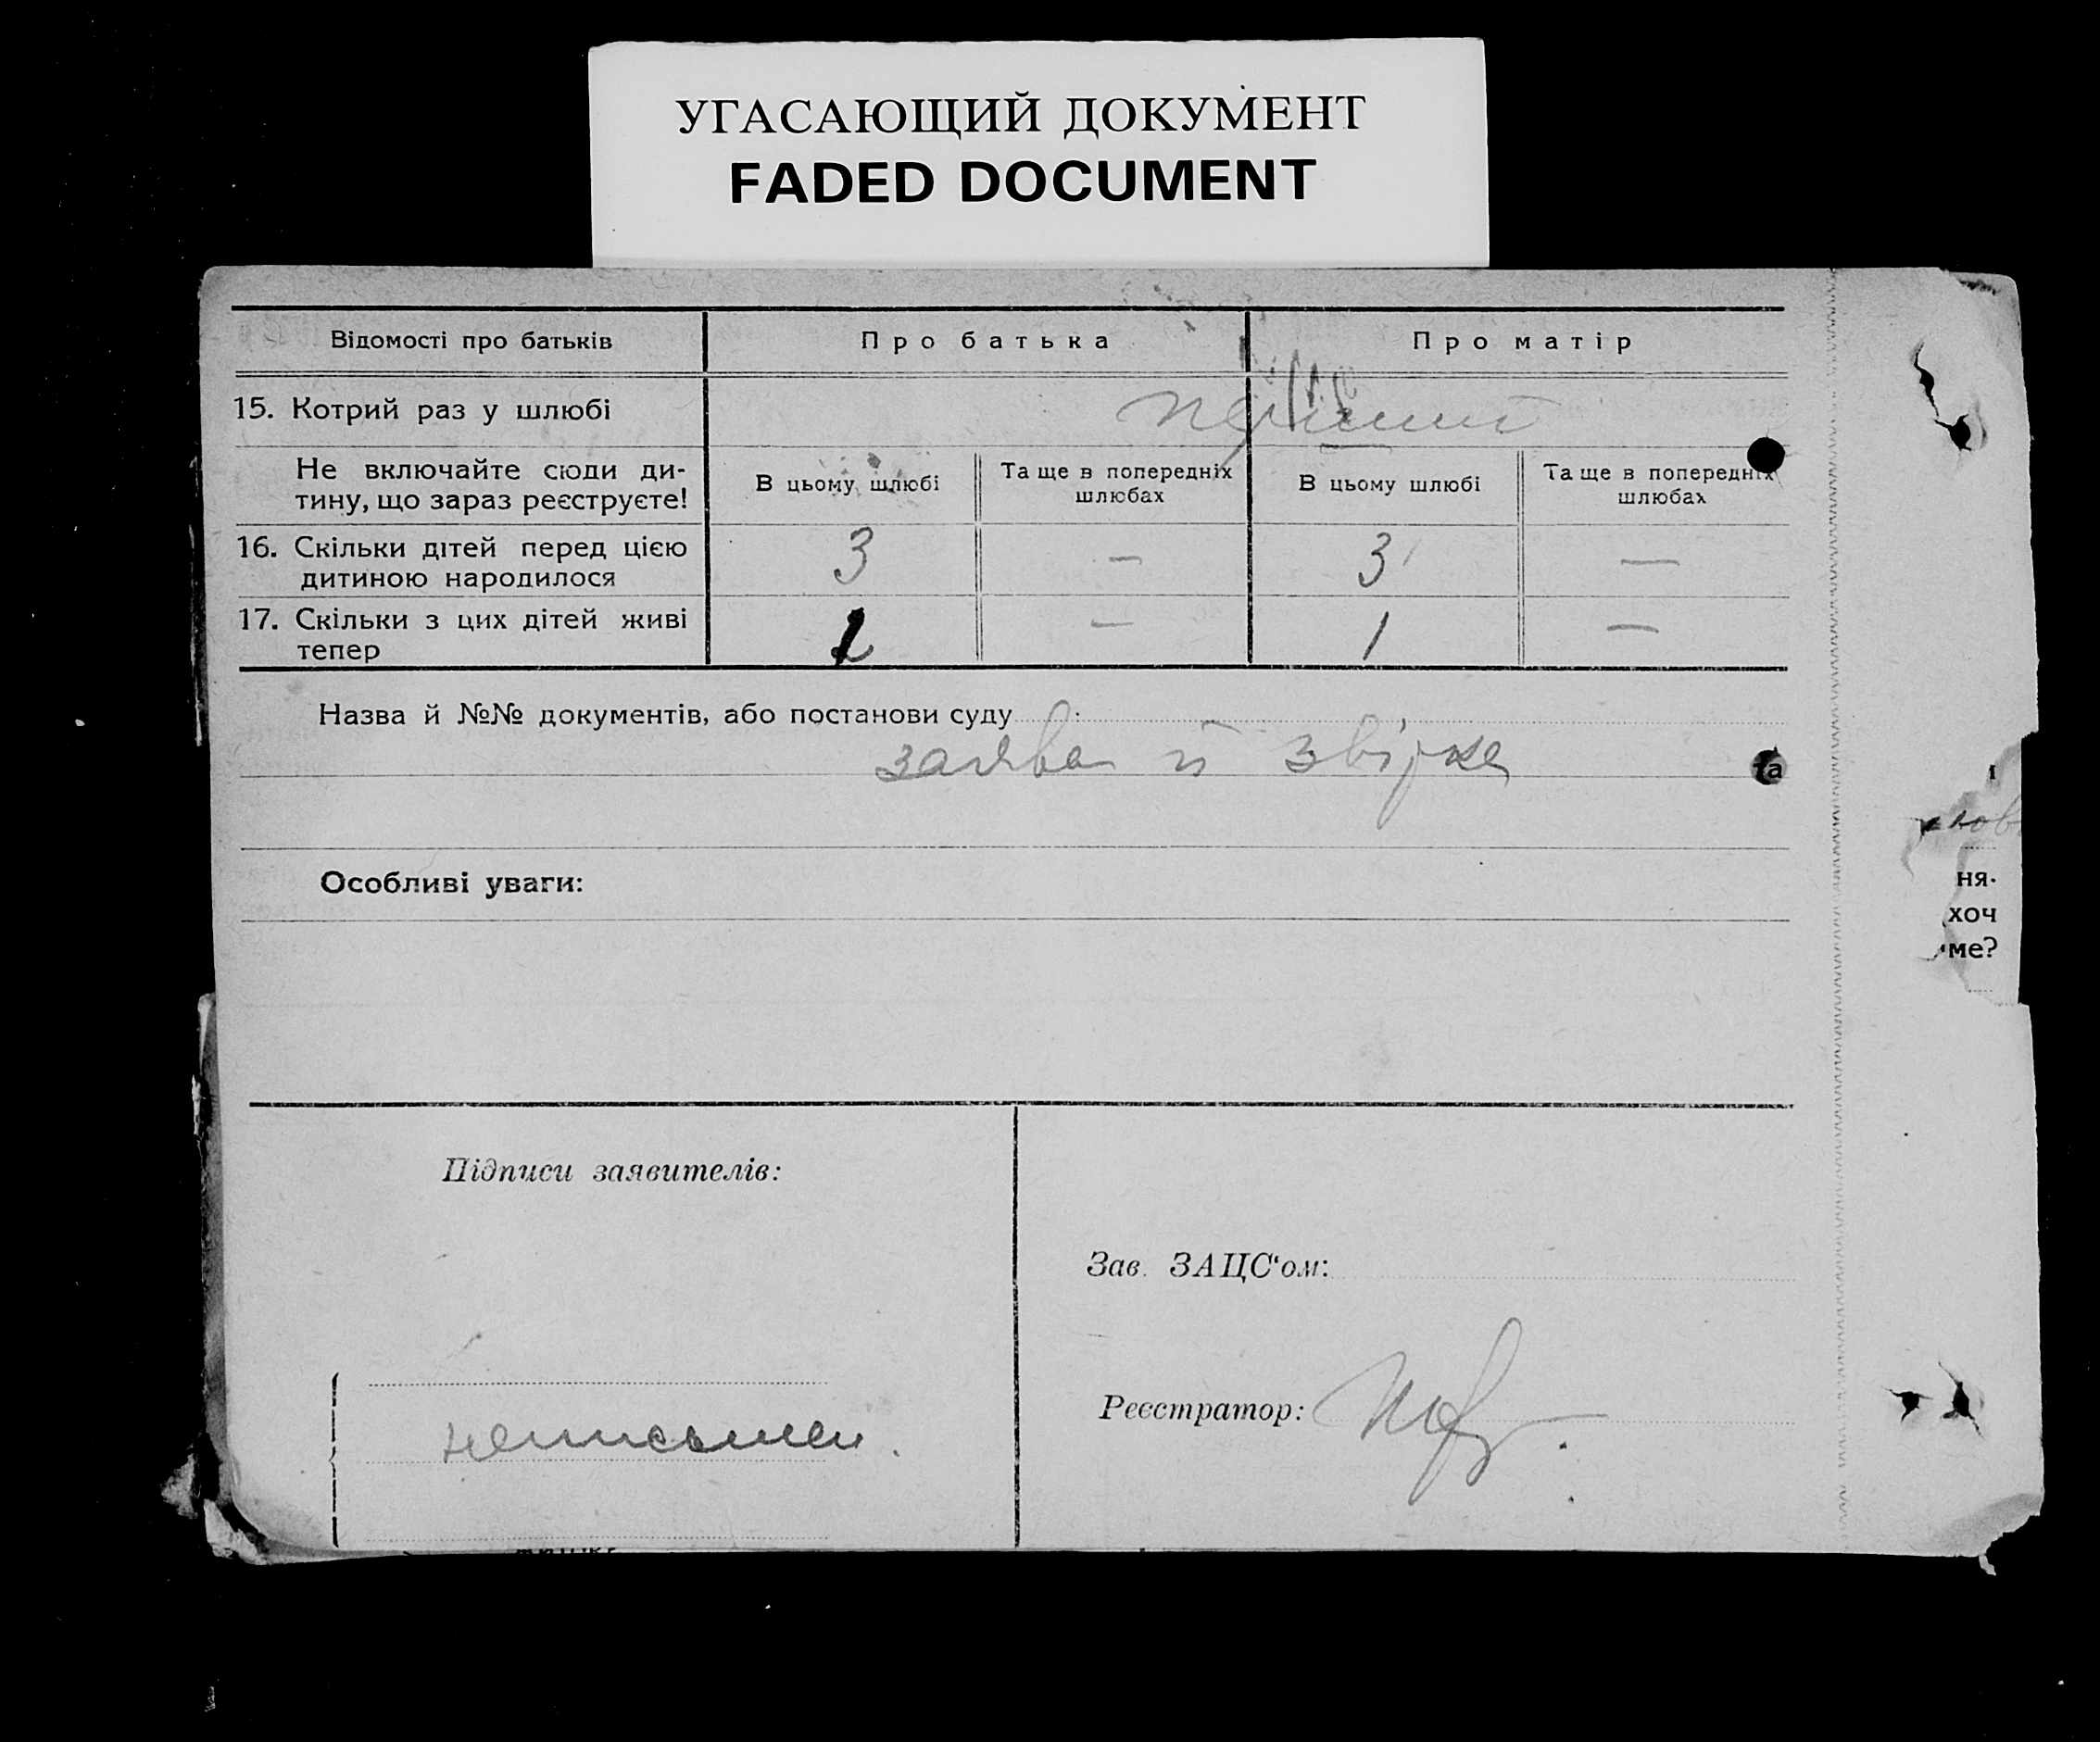 УГАСАЮЩИЙ ДОКУМЕНТ
FADED DOCUMENT
Відомості про батьків
Про батька
Про матір
15. Котрий раз у шлюбі
перший
Не включайте сюди ди-
тину, що зараз реєструєте!
В цьому шлюбі
Та ще в попередніх
шлюбах
В цьому шлюбі
Та ще в попередніх
шлюбах
16. Скільки дітей перед цією
дитиною народилося
3
—
3
—
17. Скільки з цих дітей живі
тепер
1
—
1
—
Назва й №№ документів, або постанови суду
заява й звірка
та
Особливі уваги:
ня.
хоч
ме?
Підписи заявителів:
неписьмен.
Зав. ЗАЦС‘ом:
Реєстратор: